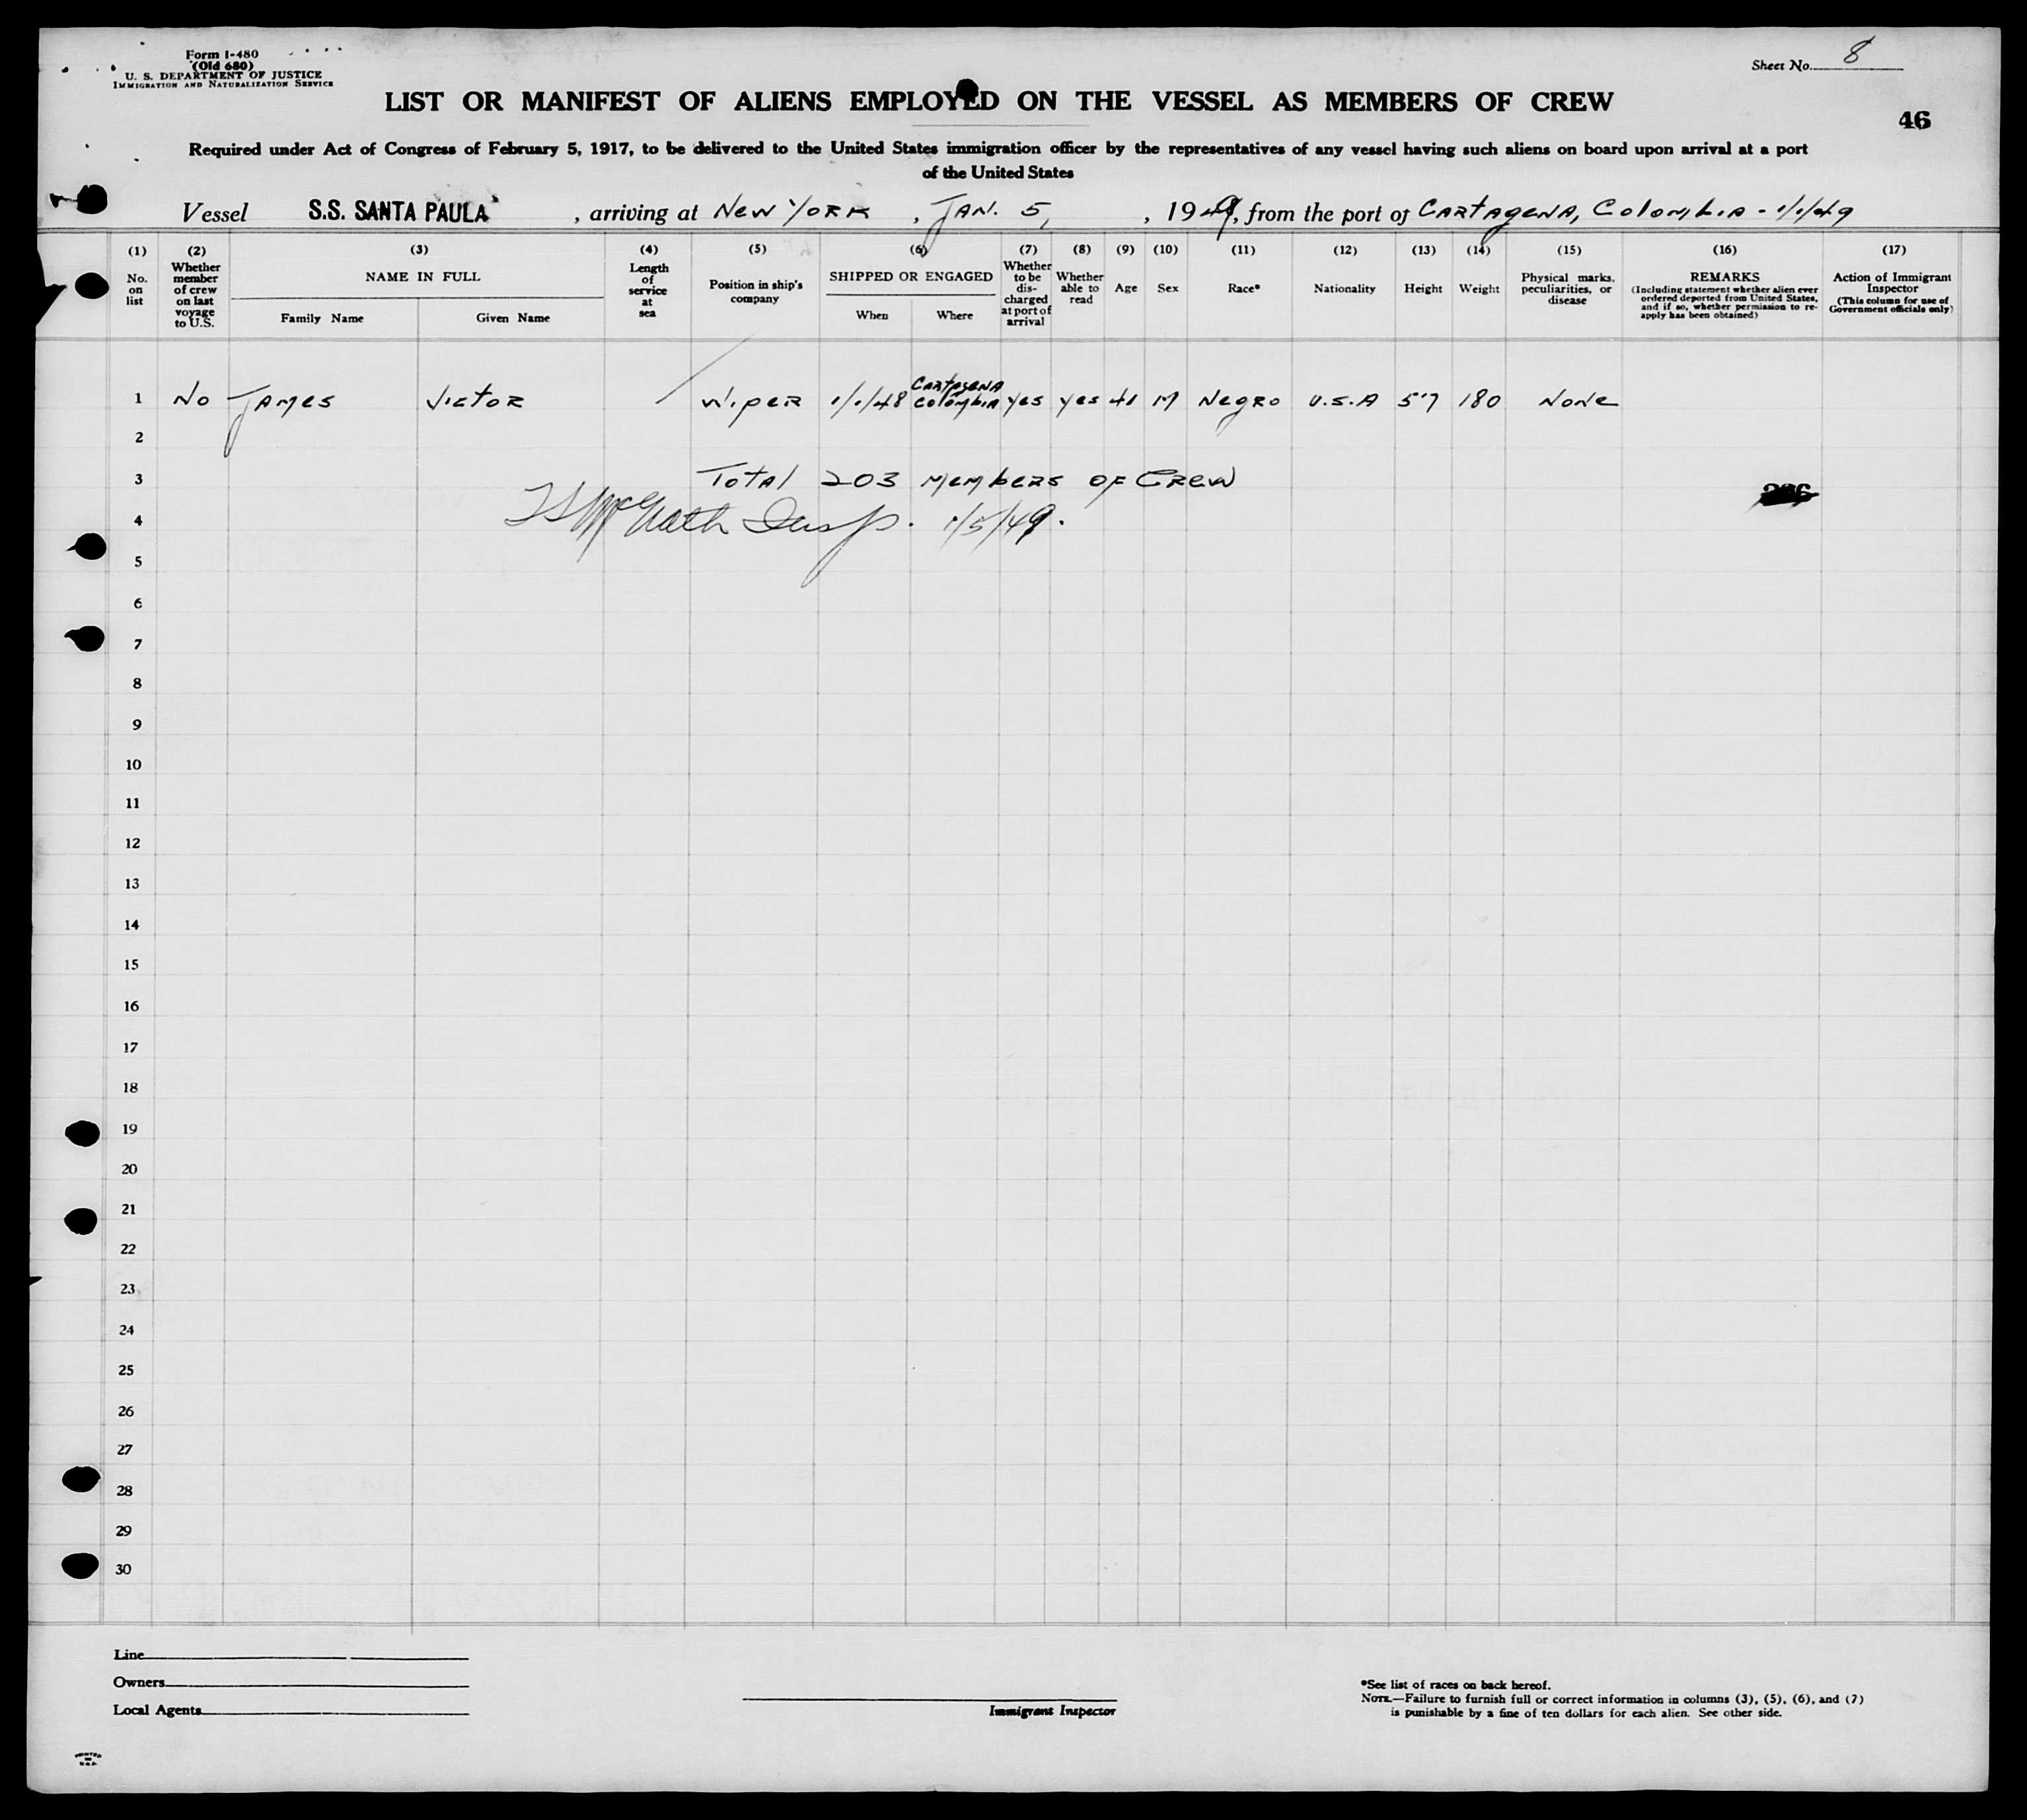 Form 1-480
(Old 680)
U. S. DEPARTMENT OF JUSTICE
IMMIGRATION AND NATURALIZATION SERVICE
Sheet No. 8
LIST OR MANIFEST OF ALIENS EMPLOYED ON THE VESSEL AS MEMBERS OF CREW
46
Required under Act of Congress of February 5, 1917, to be delivered to the United States immigration officer by the representatives of any vessel having such aliens on board upon arrival at a port
of the United States
Vessel S.S. SANTA PAULA , arriving at New York , JAN. 5, , 1949, from the port of CARTAGENA, Colombia - 1/1/49
(1) (2) (3) (4) (5) (6) (7) (8) (9) (10) (11) (12) (13) (14) (15) (16) (17)
No. on list
Whether member of crew on last voyage to U.S.
NAME IN FULL
Family Name
Given Name
Length of service at sea
Position in ship's company
SHIPPED OR ENGAGED
When
Where
Whether to be dis-charged at port of arrival
Whether able to read
Age
Sex
Race*
Nationality
Height
Weight
Physical marks, peculiarities, or disease
REMARKS
(Including statement whether alien ever ordered deported from United States, and if so, whether permission to re-apply has been obtained)
Action of Immigrant Inspector
(This column for use of Government officials only)
1 No JAMES VICTOR WIPER 1/1/48 CARTAGENA Colombia yes yes 41 M Negro U.S.A 5'7 180 None
2
3 Total 203 Members OF CREW
4 McGrath Insp. 1/5/49.
5
6
7
8
9
10
11
12
13
14
15
16
17
18
19
20
21
22
23
24
25
26
27
28
29
30
Line
Owners
Local Agents
Immigrant Inspector
*See list of races on back hereof.
NOTE.—Failure to furnish full or correct information in columns (3), (5), (6), and (7)
is punishable by a fine of ten dollars for each alien. See other side.
PRINTED IN U.S.A.